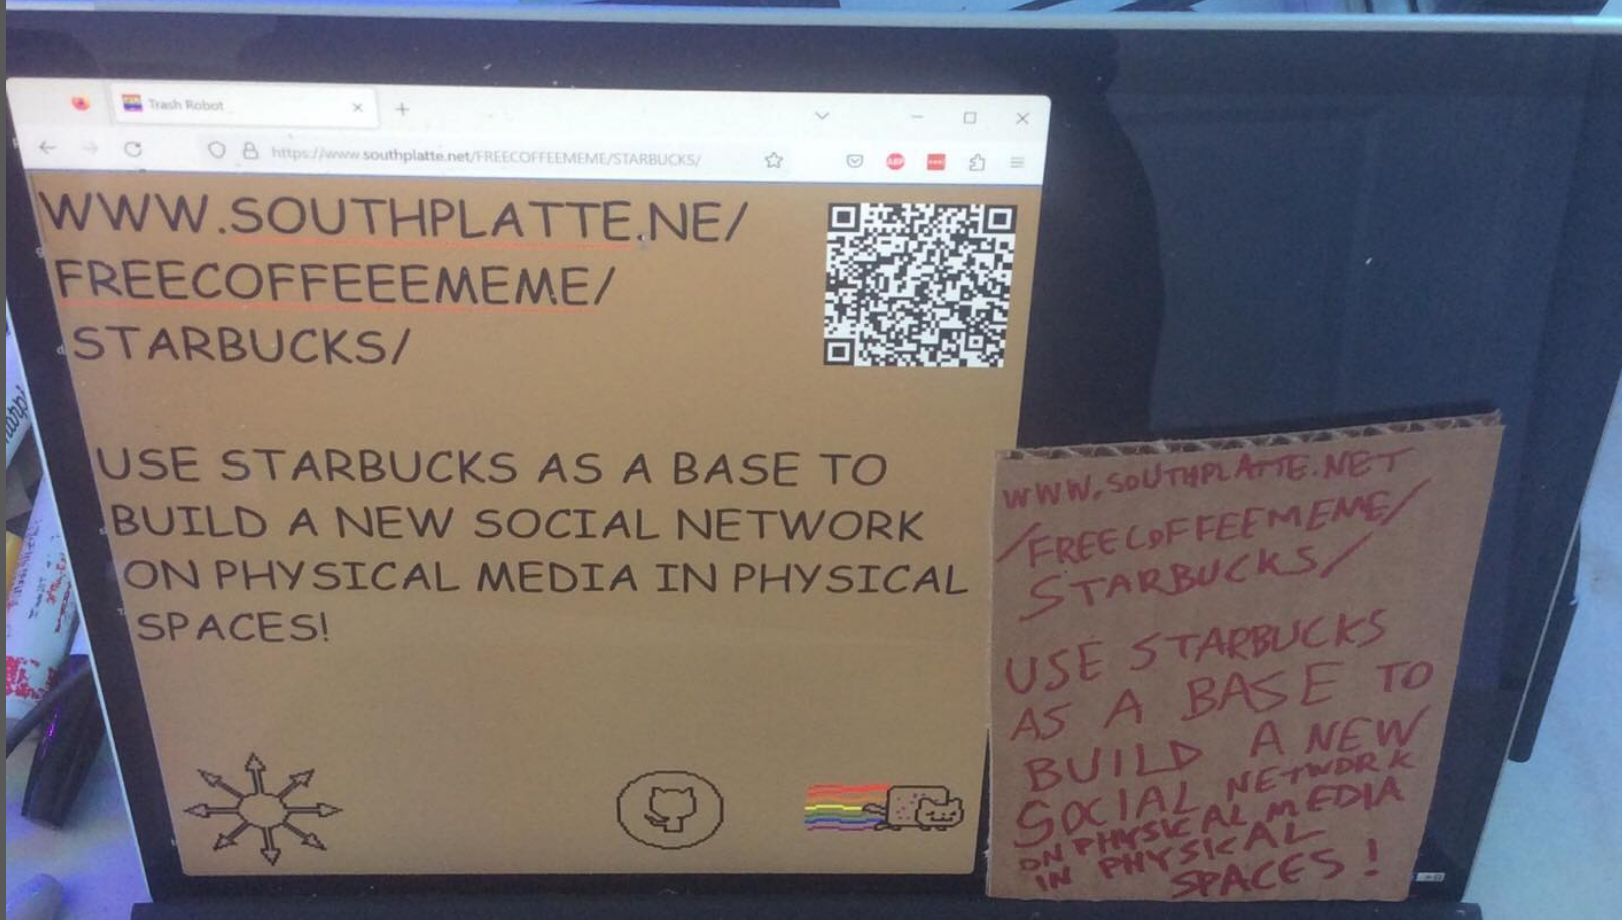 Trash Robot
https://www.southplatte.net/FREECOFFEEMEME/STARBUCKS/
ABP
WWW.SOUTHPLATTE.NE/
FREECOFFEEEMEME/
STARBUCKS/
USE STARBUCKS AS A BASE TO
BUILD A NEW SOCIAL NETWORK
ON PHYSICAL MEDIA IN PHYSICAL
SPACES!
WWW.SOUTHPLATTE.NET
/FREECOFFEEMEME/
STARBUCKS/
USE STARBUCKS
AS A BASE TO
BUILD A NEW
SOCIAL NETWORK
ON PHYSICAL MEDIA
IN PHYSICAL
SPACES!